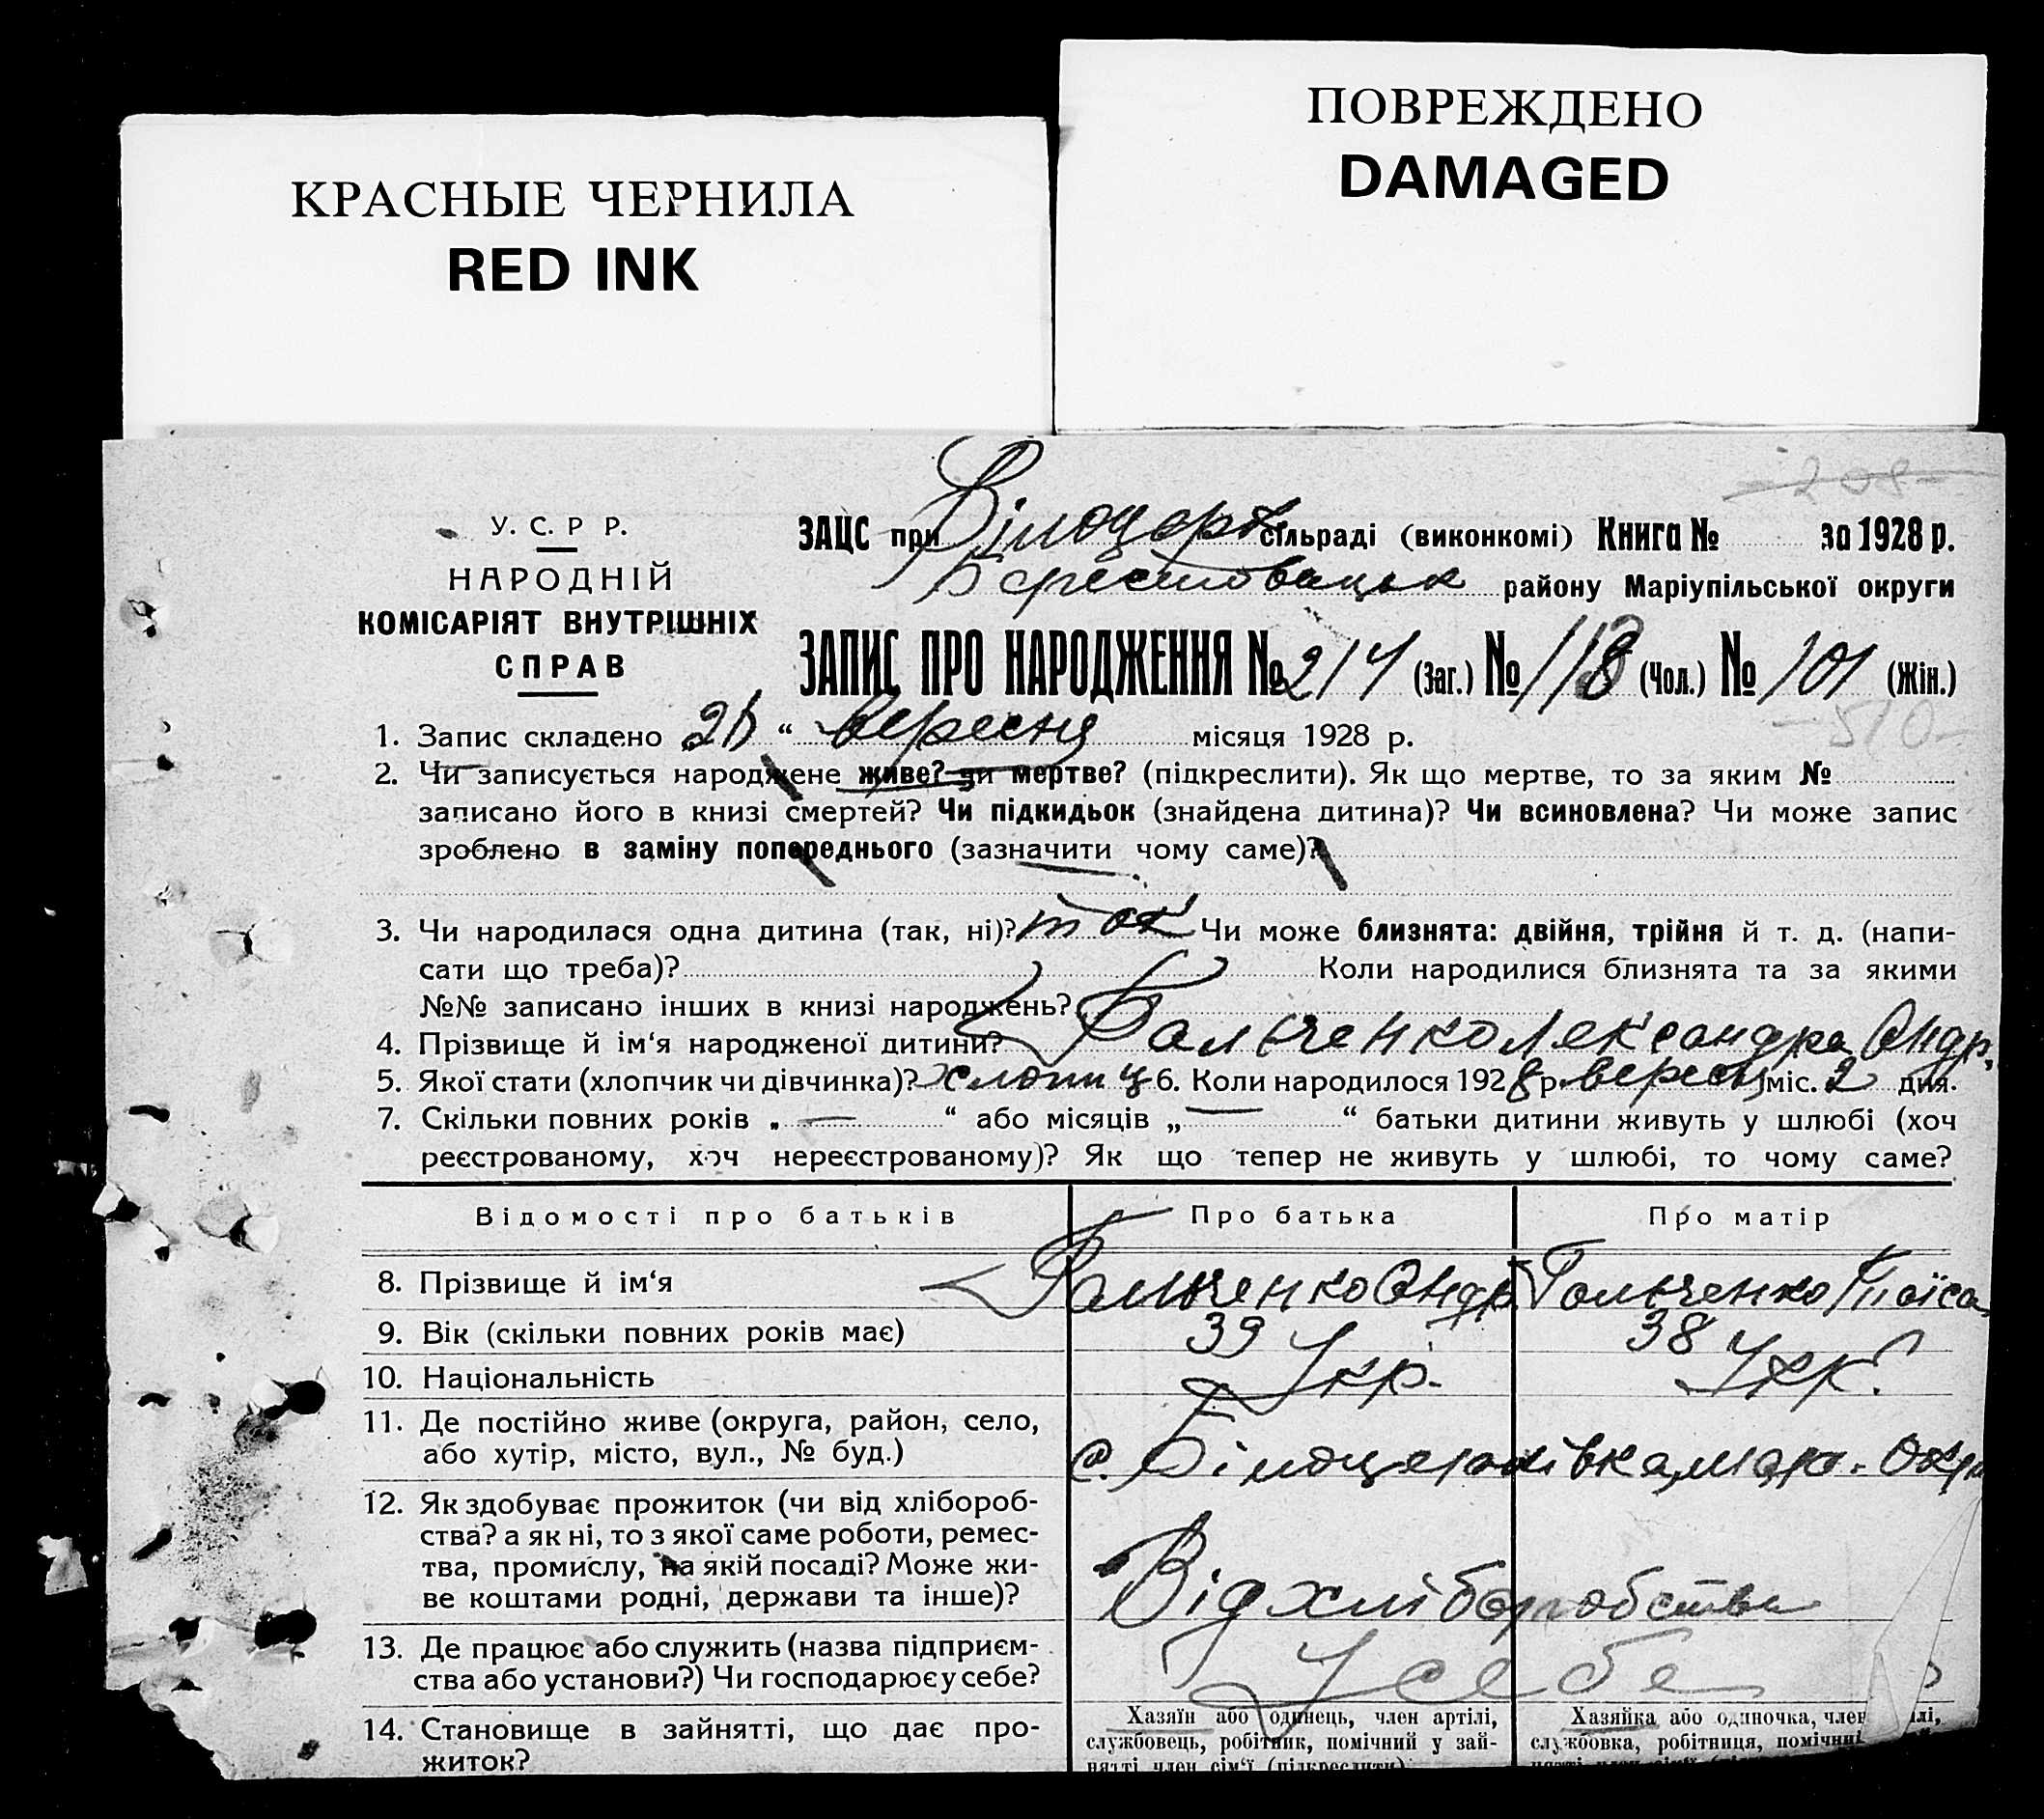 ПОВРЕЖДЕНО
DAMAGED
КРАСНЫЕ ЧЕРНИЛА
RED INK
208
У. С. Р Р.
НАРОДНІЙ
КОМІСАРІЯТ ВНУТРІШНІХ
СПРАВ
ЗАЦС при Білоцерк сільраді (виконкомі) Книга № за 1928 р.
Берестовацьк району Маріупільської округи
ЗАПИС ПРО НАРОДЖЕННЯ № 214 (Заг.) № 113 (Чол.) № 101 (Жін.)
510
1. Запис складено “ вересня місяця 1928 р.
2. Чи записується народжене живе? чи мертве? (підкреслити). Як що мертве, то за яким №
записано його в книзі смертей? Чи підкидьок (знайдена дитина)? Чи всиновлена? Чи може запис
зроблено в заміну попереднього (зазначити чому саме)?
3. Чи народилася одна дитина (так, ні)? так Чи може близнята: двійня, трійня й т. д. (напи-
сати що треба)? Коли народилися близнята та за якими
№№ записано інших в книзі народжень?
4. Прізвище й ім‘я народженої дитини? Гальченко Лександра Андр.
5. Якої стати (хлопчик чи дівчинка)? хлопиц 6. Коли народилося 1928 р. вересня міс. 2 дня.
7. Скільки повних років „ — “ або місяців „ — “ батьки дитини живуть у шлюбі (хоч
реєстрованому, хоч нереєстрованому)? Як що тепер не живуть у шлюбі, то чому саме?
Відомості про батьків Про батька Про матір
8. Прізвище й ім‘я Гальченко Андр. Гальченко Таїса
9. Вік (скільки повних років має) 39 38
10. Національність Укр. Укр.
11. Де постійно живе (округа, район, село,
або хутір, місто, вул., № буд.) с. Білоцерківка мар. Окр
12. Як здобуває прожиток (чи від хлібороб-
ства? а як ні, то з якої саме роботи, ремес-
тва, промислу, на якій посаді? Може жи-
ве коштами родні, держави та інше)? Від хліборобства
13. Де працює або служить (назва підприєм-
ства або установи?) Чи господарює у себе? У себе
14. Становище в зайнятті, що дає про-
житок?
Хазяїн або одинець, член артілі,
службовець, робітник, помічний у зай-
нятті член сім‘ї (підкреслити)
Хазяйка або одиночка, член
службовка, робітниця,